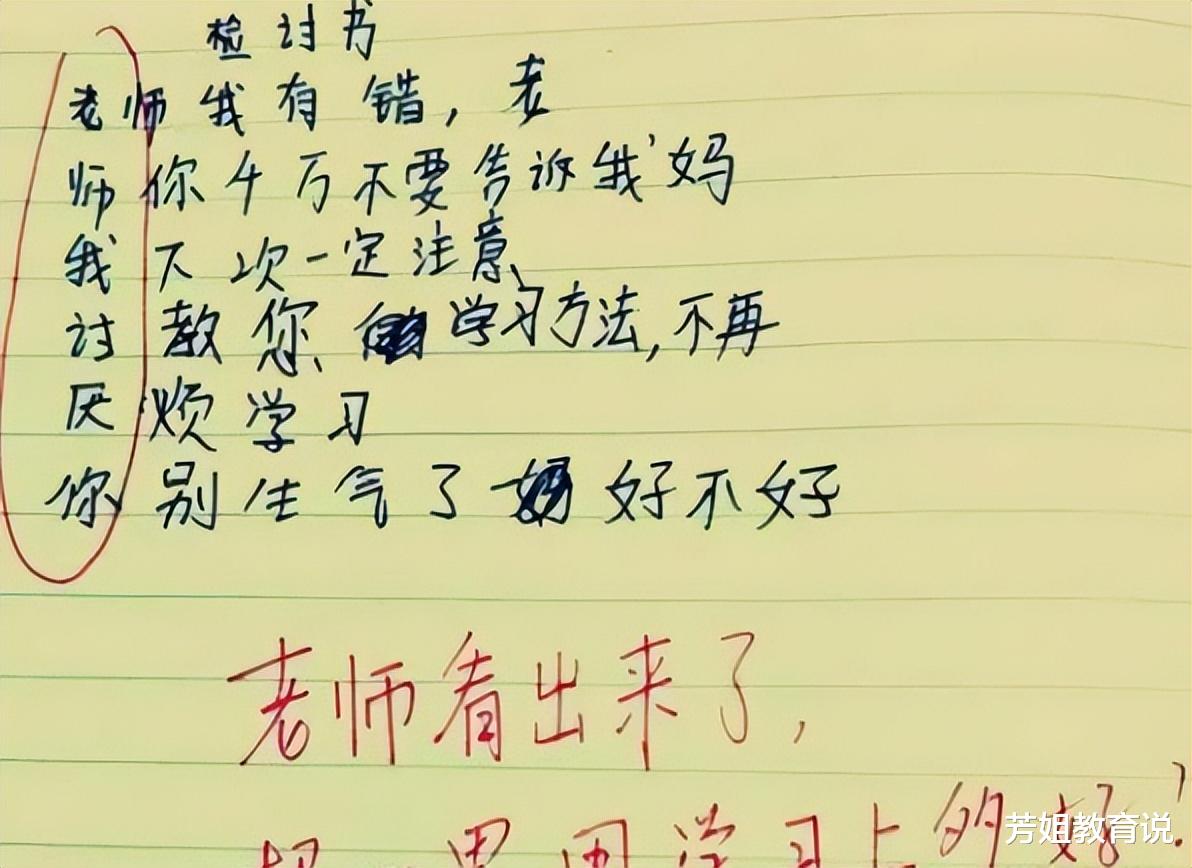 检讨书
老师我有错，老
师你千万不要告诉我妈
我下次一定注意
讨教您 学习方法，不再
厌烦学习
你别生气了 好不好
老师看出来了，
思用学习上的好
芳姐教育说